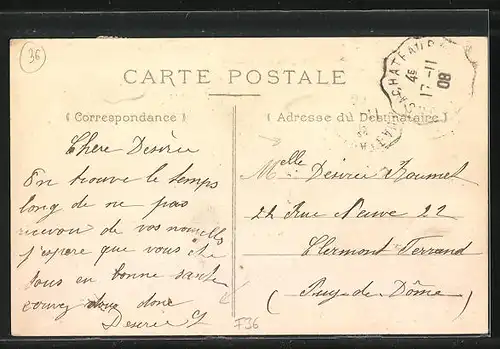 36
CARTE POSTALE
( Correspondance )
( Adresse du Destinataire )
CHATEAU
4E
17-11
08
Chere Desirée
On trouve le temps
long de ne pas
recevoir de vos nouvelles
j'espere que vous ete
tous en bonne sante
donc
Desirée
Melle Desirée
22 Rue Neuve 22
Clermont Ferrand
( Puy-de-Dôme )
F36